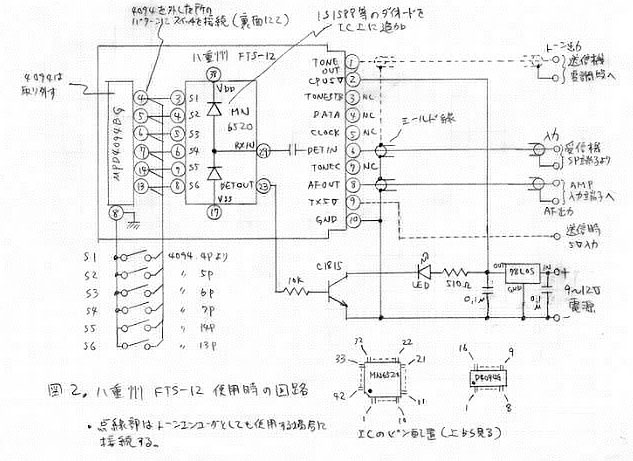 4094を外した所の
パターンにスイッチを接続(裏面にて)
1S1588等のダイオードを
IC上に追加
4094は
取り外す
八重州 FTS-12
μPD4094BG
4
5
6
7
14
13
8
3
4
5
6
9
8
S1
S2
S3
S4
S5
S6
38
VDD
MN
6520
RXIN
DETOUT
23
VSS
17
TONE OUT 1
CPU5V 2
TONESTB 3 NC
DATA 4 NC
CLOCK 5 NC
DETIN 6
TONEC 7 NC
AFOUT 8
TX5V 9
GND 10
シールド線
トーン出力
送信機
変調段へ
入力
受信機
SP端子より
AMP
入力端子へ
AF出力
送信時
5V入力
S1 4094.4Pより
S2 〃 5P
S3 〃 6P
S4 〃 7P
S5 〃 14P
S6 〃 13P
10K
C1815
LED
510Ω
OUT 78L05 IN
GND
0.1μ
0.1μ
+
9〜12V
電源
-
32 22
33 21
MN6520
42 11
1 10
16 9
1 8
ICのピン配置(上から見る)
図2. 八重州 FTS-12 使用時の回路
・点線部はトーンエンコーダとしても使用する場合に
接続する。